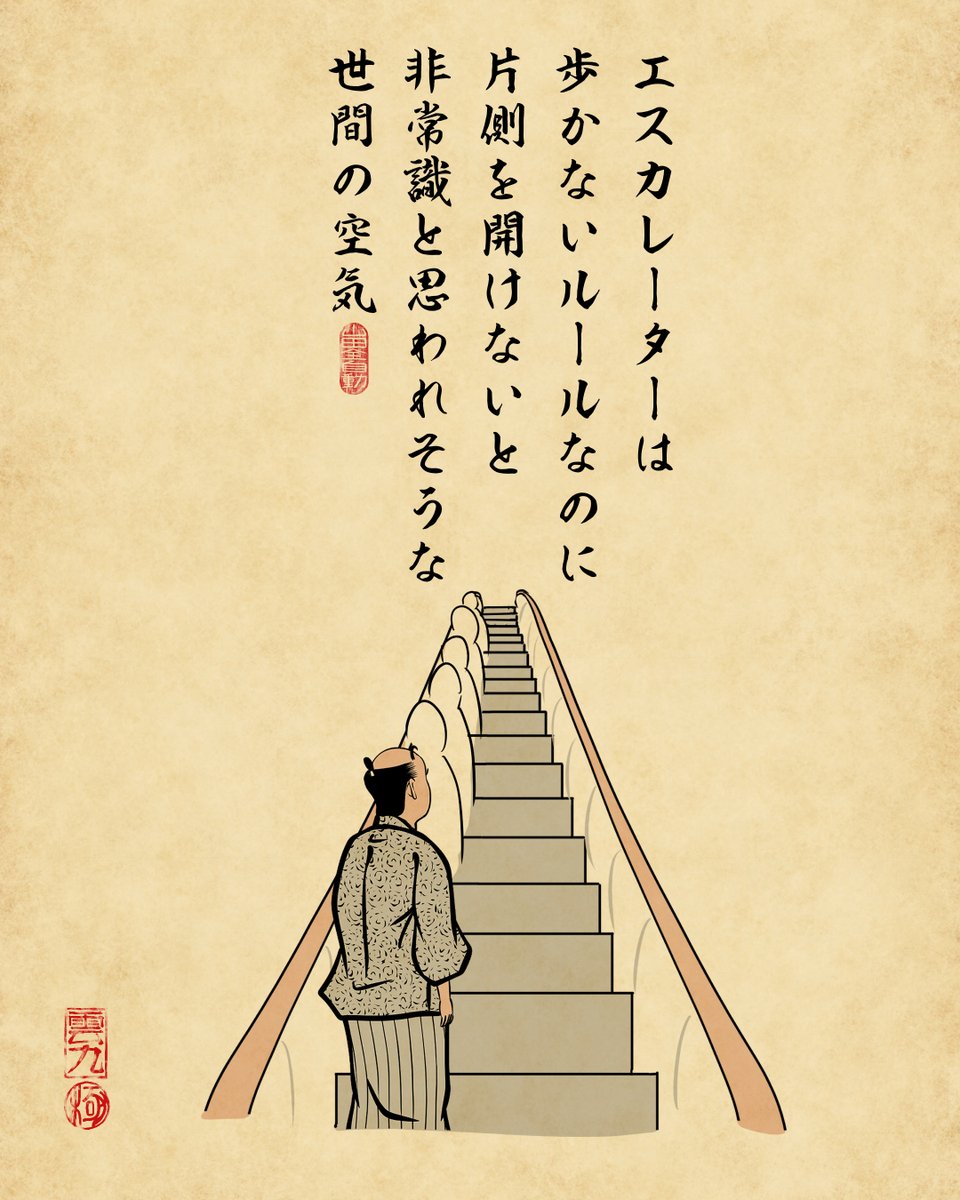 エスカレーターは
歩かないルールなのに
片側を開けないと
非常識と思われそうな
世間の空気